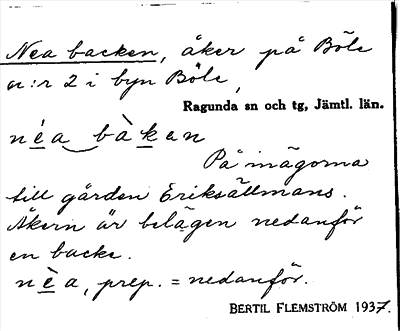 Nea backen, åker på Böle
n:r 2 i byn Böle,
Ragunda sn och tg, Jämtl. län.
nèa bàkan
På inägorna
till gården Eriksällmans.
Åkern är belägen nedanför
en backe.
nèa, prep. = nedanför.
BERTIL FLEMSTRÖM 1937.